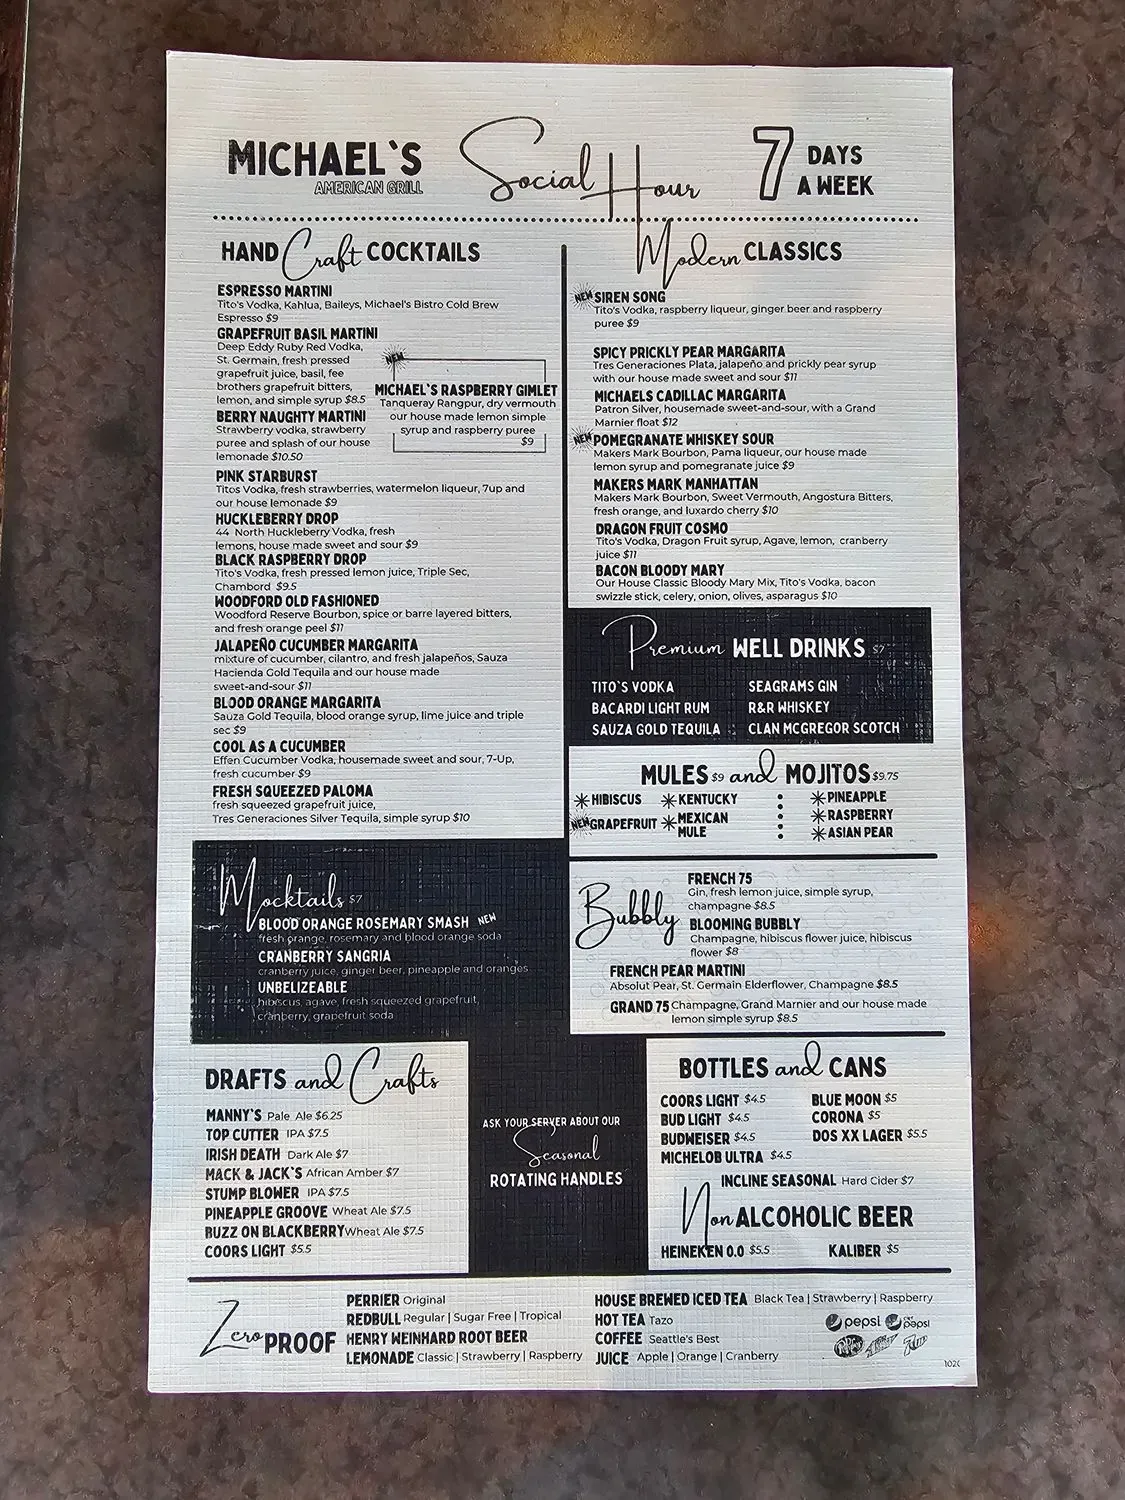 MICHAEL`S
AMERICAN GRILL
Social Hour
7 DAYS
A WEEK
HAND Craft COCKTAILS
ESPRESSO MARTINI
Tito's Vodka, Kahlua, Baileys, Michael's Bistro Cold Brew
Espresso $9
GRAPEFRUIT BASIL MARTINI
Deep Eddy Ruby Red Vodka,
St. Germain, fresh pressed
grapefruit juice, basil, fee
brothers grapefruit bitters,
lemon, and simple syrup $8.5
BERRY NAUGHTY MARTINI
Strawberry vodka, strawberry
puree and splash of our house
lemonade $10.50
NEW
MICHAEL`S RASPBERRY GIMLET
Tanqueray Rangpur, dry vermouth
our house made lemon simple
syrup and raspberry puree
$9
PINK STARBURST
Titos Vodka, fresh strawberries, watermelon liqueur, 7up and
our house lemonade $9
HUCKLEBERRY DROP
44 North Huckleberry Vodka, fresh
lemons, house made sweet and sour $9
BLACK RASPBERRY DROP
Tito's Vodka, fresh pressed lemon juice, Triple Sec,
Chambord $9.5
WOODFORD OLD FASHIONED
Woodford Reserve Bourbon, spice or barre layered bitters,
and fresh orange peel $11
JALAPEÑO CUCUMBER MARGARITA
mixture of cucumber, cilantro, and fresh jalapeños, Sauza
Hacienda Gold Tequila and our house made
sweet-and-sour $11
BLOOD ORANGE MARGARITA
Sauza Gold Tequila, blood orange syrup, lime juice and triple
sec $9
COOL AS A CUCUMBER
Effen Cucumber Vodka, housemade sweet and sour, 7-Up,
fresh cucumber $9
FRESH SQUEEZED PALOMA
fresh squeezed grapefruit juice,
Tres Generaciones Silver Tequila, simple syrup $10
Modern CLASSICS
NEW SIREN SONG
Tito's Vodka, raspberry liqueur, ginger beer and raspberry
puree $9
SPICY PRICKLY PEAR MARGARITA
Tres Generaciones Plata, jalapeño and prickly pear syrup
with our house made sweet and sour $11
MICHAELS CADILLAC MARGARITA
Patron Silver, housemade sweet-and-sour, with a Grand
Marnier float $12
NEW POMEGRANATE WHISKEY SOUR
Makers Mark Bourbon, Pama liqueur, our house made
lemon syrup and pomegranate juice $9
MAKERS MARK MANHATTAN
Makers Mark Bourbon, Sweet Vermouth, Angostura Bitters,
fresh orange, and luxardo cherry $10
DRAGON FRUIT COSMO
Tito's Vodka, Dragon Fruit syrup, Agave, lemon, cranberry
juice $11
BACON BLOODY MARY
Our House Classic Bloody Mary Mix, Tito's Vodka, bacon
swizzle stick, celery, onion, olives, asparagus $10
Premium WELL DRINKS $7
TITO`S VODKA
BACARDI LIGHT RUM
SAUZA GOLD TEQUILA
SEAGRAMS GIN
R&R WHISKEY
CLAN MCGREGOR SCOTCH
MULES $9 and MOJITOS $9.75
HIBISCUS
NEW GRAPEFRUIT
KENTUCKY
MEXICAN
MULE
PINEAPPLE
RASPBERRY
ASIAN PEAR
Mocktails $7
BLOOD ORANGE ROSEMARY SMASH NEW
fresh orange, rosemary and blood orange soda
CRANBERRY SANGRIA
cranberry juice, ginger beer, pineapple and oranges
UNBELIZEABLE
hibiscus, agave, fresh squeezed grapefruit,
cranberry, grapefruit soda
Bubbly
FRENCH 75
Gin, fresh lemon juice, simple syrup,
champagne $8.5
BLOOMING BUBBLY
Champagne, hibiscus flower juice, hibiscus
flower $8
FRENCH PEAR MARTINI
Absolut Pear, St. Germain Elderflower, Champagne $8.5
GRAND 75 Champagne, Grand Marnier and our house made
lemon simple syrup $8.5
DRAFTS and Crafts
MANNY'S Pale Ale $6.25
TOP CUTTER IPA $7.5
IRISH DEATH Dark Ale $7
MACK & JACK`S African Amber $7
STUMP BLOWER IPA $7.5
PINEAPPLE GROOVE Wheat Ale $7.5
BUZZ ON BLACKBERRY Wheat Ale $7.5
COORS LIGHT $5.5
ASK YOUR SERVER ABOUT OUR
Seasonal
ROTATING HANDLES
BOTTLES and CANS
COORS LIGHT $4.5
BUD LIGHT $4.5
BUDWEISER $4.5
MICHELOB ULTRA $4.5
BLUE MOON $5
CORONA $5
DOS XX LAGER $5.5
INCLINE SEASONAL Hard Cider $7
Non ALCOHOLIC BEER
HEINEKEN 0.0 $5.5
KALIBER $5
Zero PROOF
PERRIER Original
REDBULL Regular | Sugar Free | Tropical
HENRY WEINHARD ROOT BEER
LEMONADE Classic | Strawberry | Raspberry
HOUSE BREWED ICED TEA Black Tea | Strawberry | Raspberry
HOT TEA Tazo
COFFEE Seattle's Best
JUICE Apple | Orange | Cranberry
pepsi
pepsi